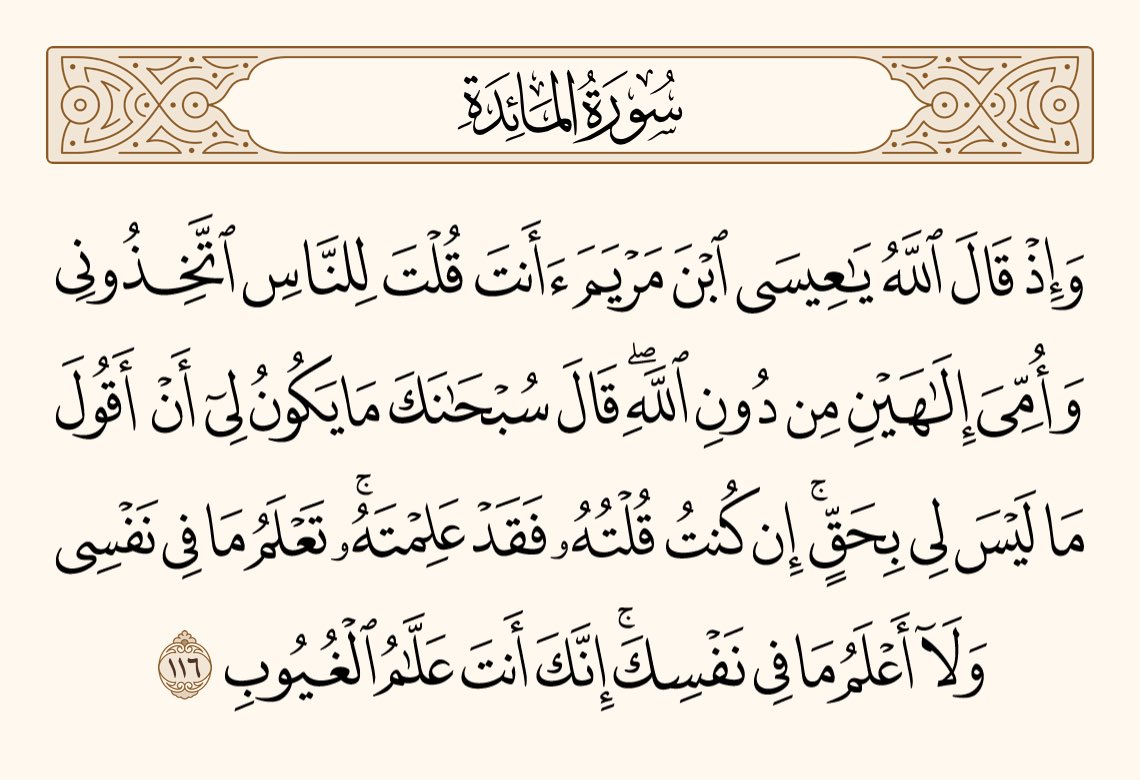 سُورَةُ المَائِدَةِ
وَإِذْ قَالَ ٱللَّهُ يَـٰعِيسَى ٱبْنَ مَرْيَمَ ءَأَنتَ قُلْتَ لِلنَّاسِ ٱتَّخِذُونِى
وَأُمِّىَ إِلَـٰهَيْنِ مِن دُونِ ٱللَّهِ ۖ قَالَ سُبْحَـٰنَكَ مَا يَكُونُ لِىٓ أَنْ أَقُولَ
مَا لَيْسَ لِى بِحَقٍّ ۚ إِن كُنتُ قُلْتُهُۥ فَقَدْ عَلِمْتَهُۥ ۚ تَعْلَمُ مَا فِى نَفْسِى
وَلَآ أَعْلَمُ مَا فِى نَفْسِكَ ۚ إِنَّكَ أَنتَ عَلَّـٰمُ ٱلْغُيُوبِ ١١٦